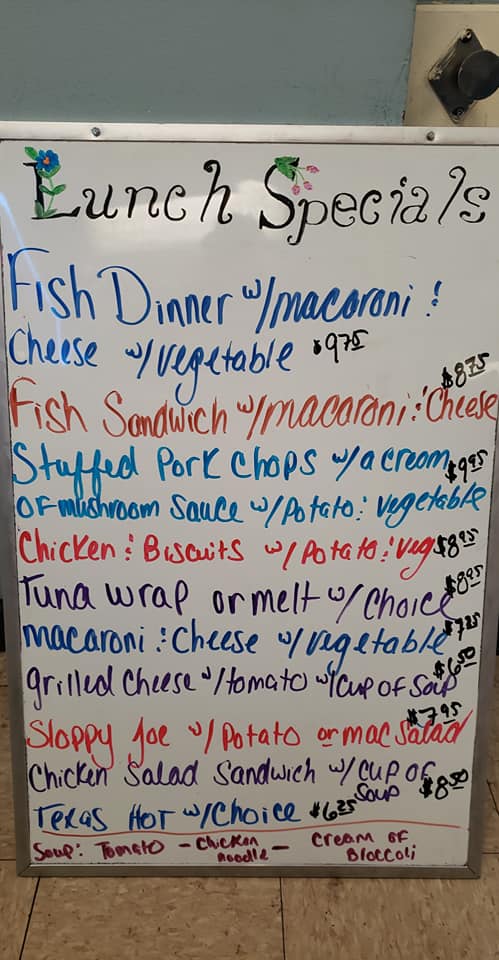 Lunch Specials
Fish Dinner w/macaroni &
Cheese w/vegetable $9.75
Fish Sandwich w/macaroni & Cheese $8.75
Stuffed Pork Chops w/a cream $9.95
of mushroom Sauce w/Potato & vegetable
Chicken & Biscuits w/Potato & veg $8.95
Tuna wrap or melt w/Choice $8.95
macaroni & Cheese w/vegetable $7.25
grilled Cheese w/tomato w/cup of Soup $6.50
Sloppy Joe w/Potato or mac Salad $7.95
Chicken Salad Sandwich w/cup of
Soup $8.50
Texas Hot w/Choice $6.25
Soup: Tomato - Chicken noodle - Cream of Broccoli